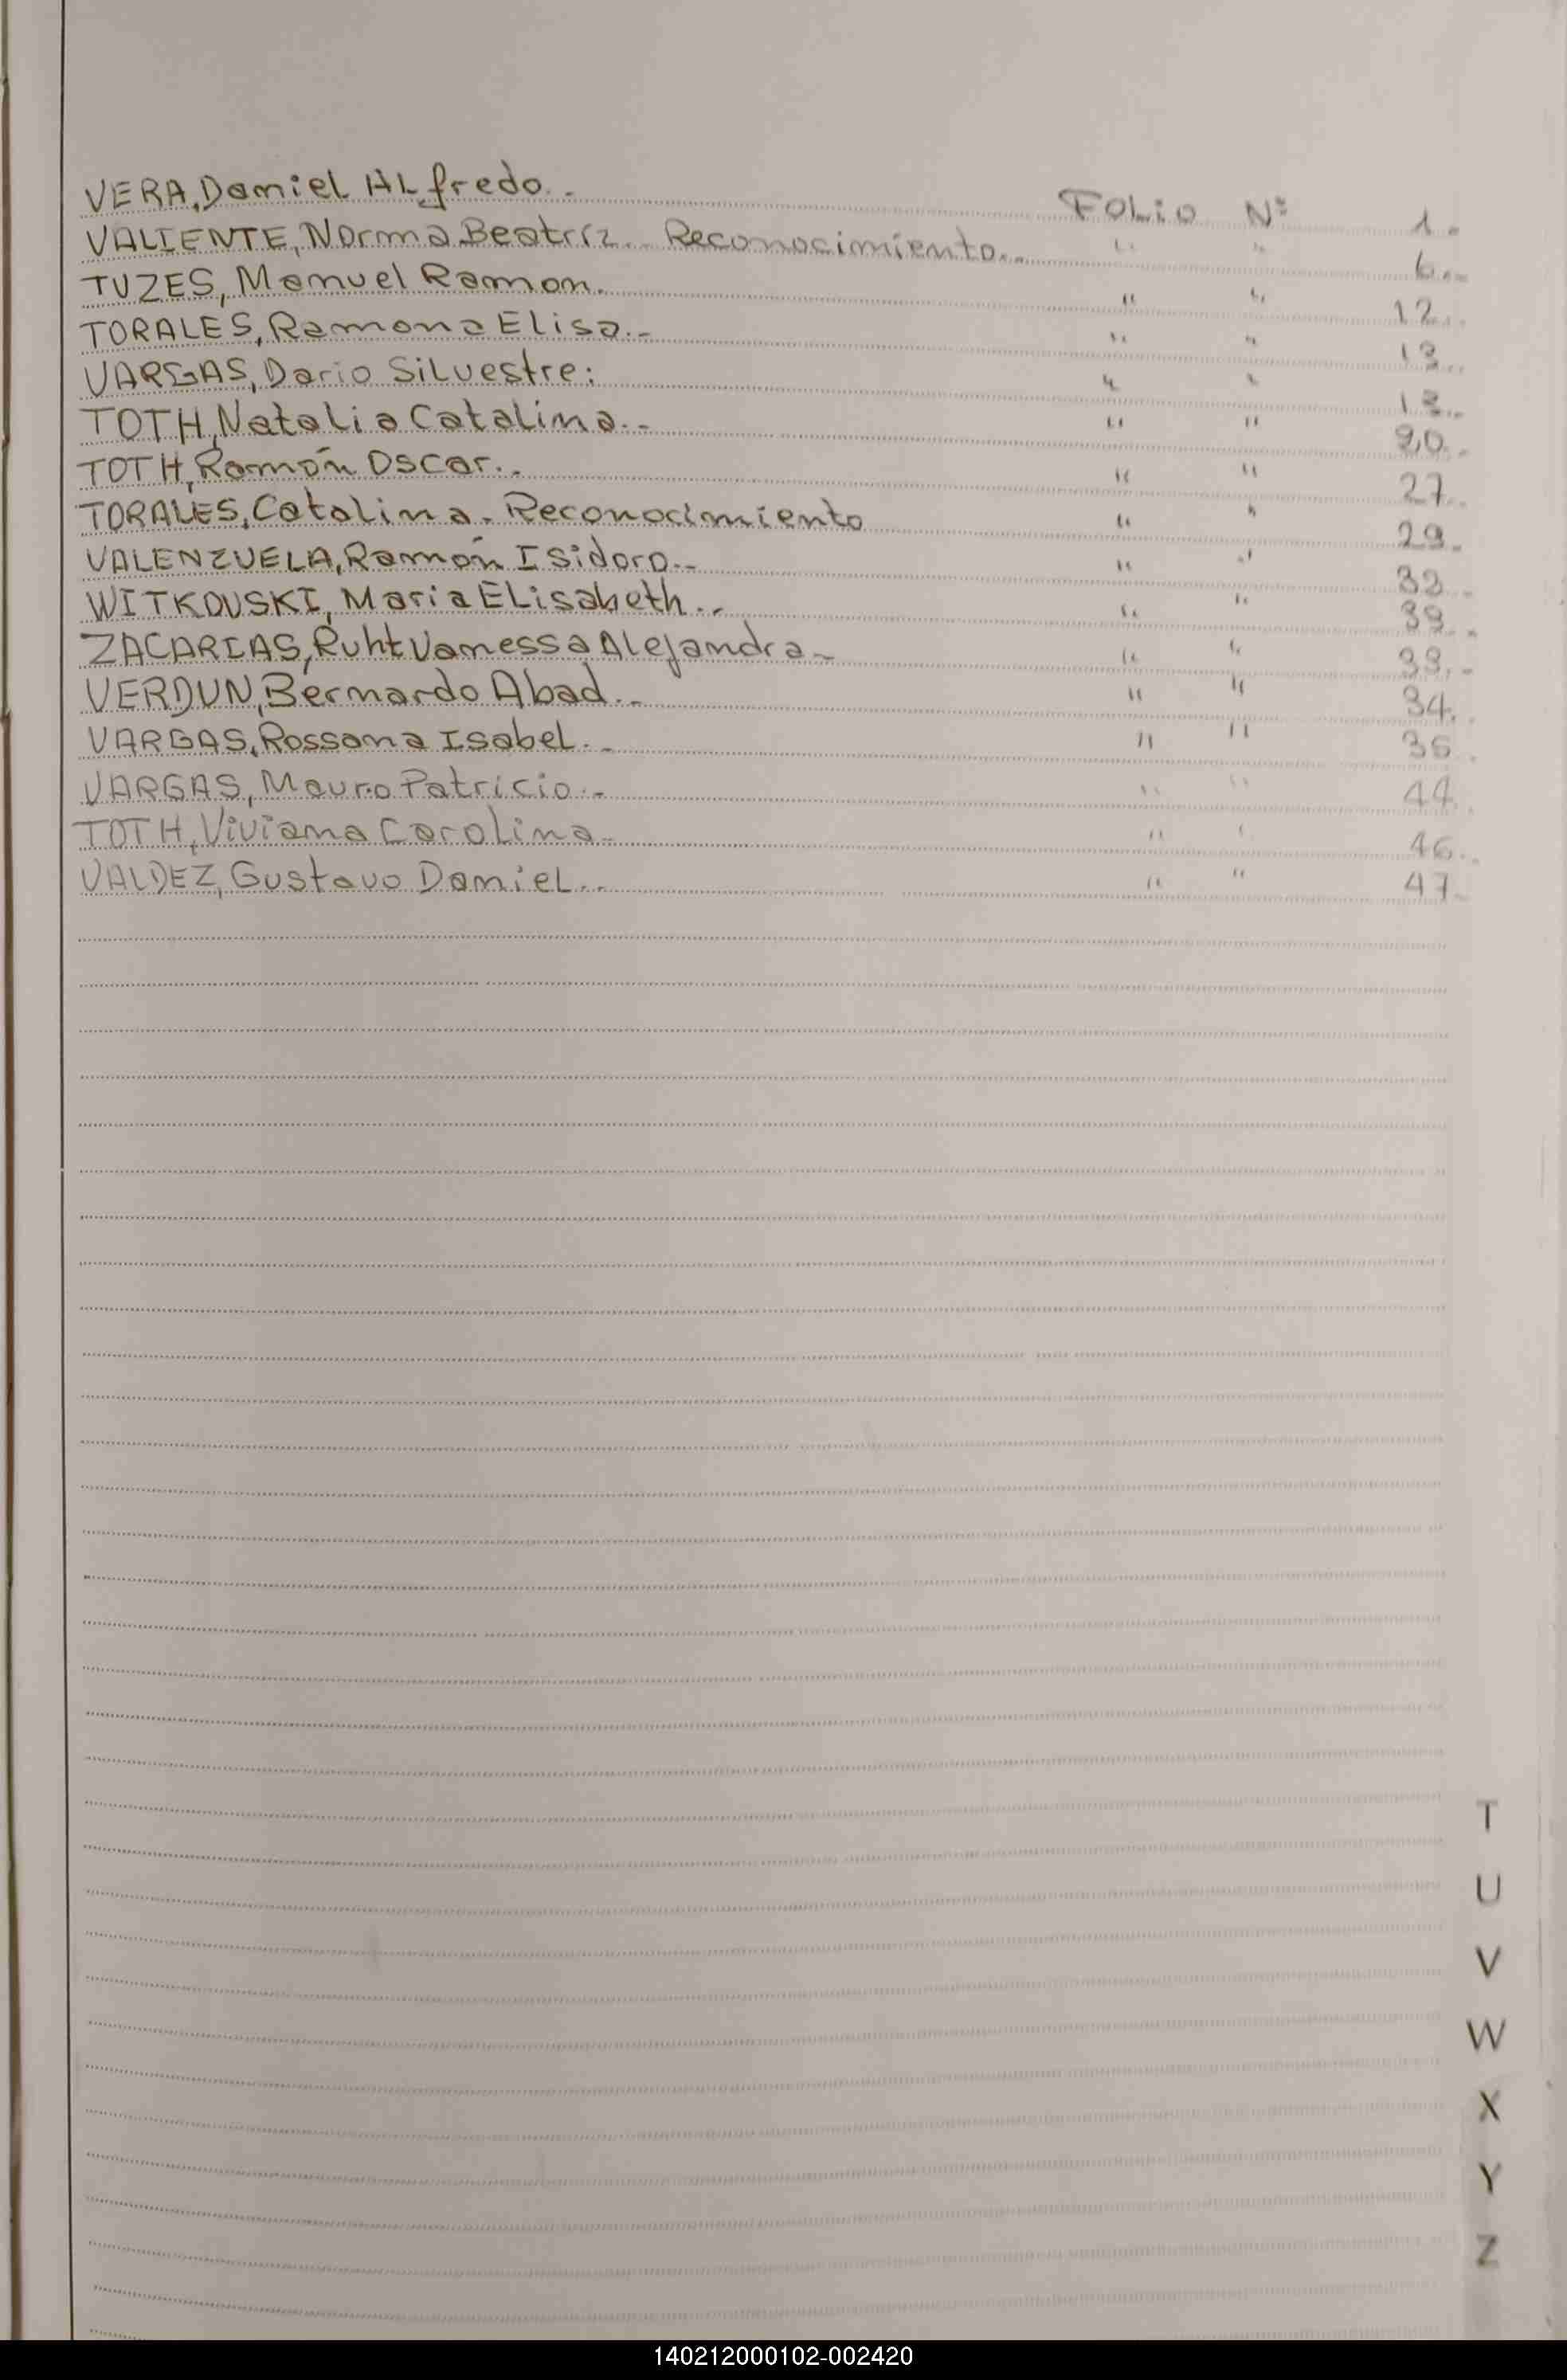 VERA, Daniel ALfredo.. FOLIO Nº 1.-
VALIENTE, Norma Beatriz.. Reconocimiento... " " 6.-
TUZES, Manuel Ramon. " " 12..
TORALES, Ramona Elisa.- " " 13..
VARGAS, Dario Silvestre: " " 13.-
TOTH, Natalia Catalina.- " " 20.-
TOTH, Ramón Oscar.. " " 27..
TORALES, Catalina. Reconocimiento " " 29.-
VALENZUELA, Ramón Isidoro.- " "
WITKOVSKI, Maria ELisabeth.. " "
ZACARIAS, Ruht Vanessa Alejandra- " " 33.-
VERDUN, Bernardo Abad.- " " 34.
VARGAS, Rossana Isabel.- " " 36.
VARGAS, Mauro Patricio.- " " 44.
TOTH, Viviana Carolina.- " " 46..
VALDEZ, Gustavo Daniel... " " 47.-
T
U
V
W
X
Y
Z
140212000102-002420